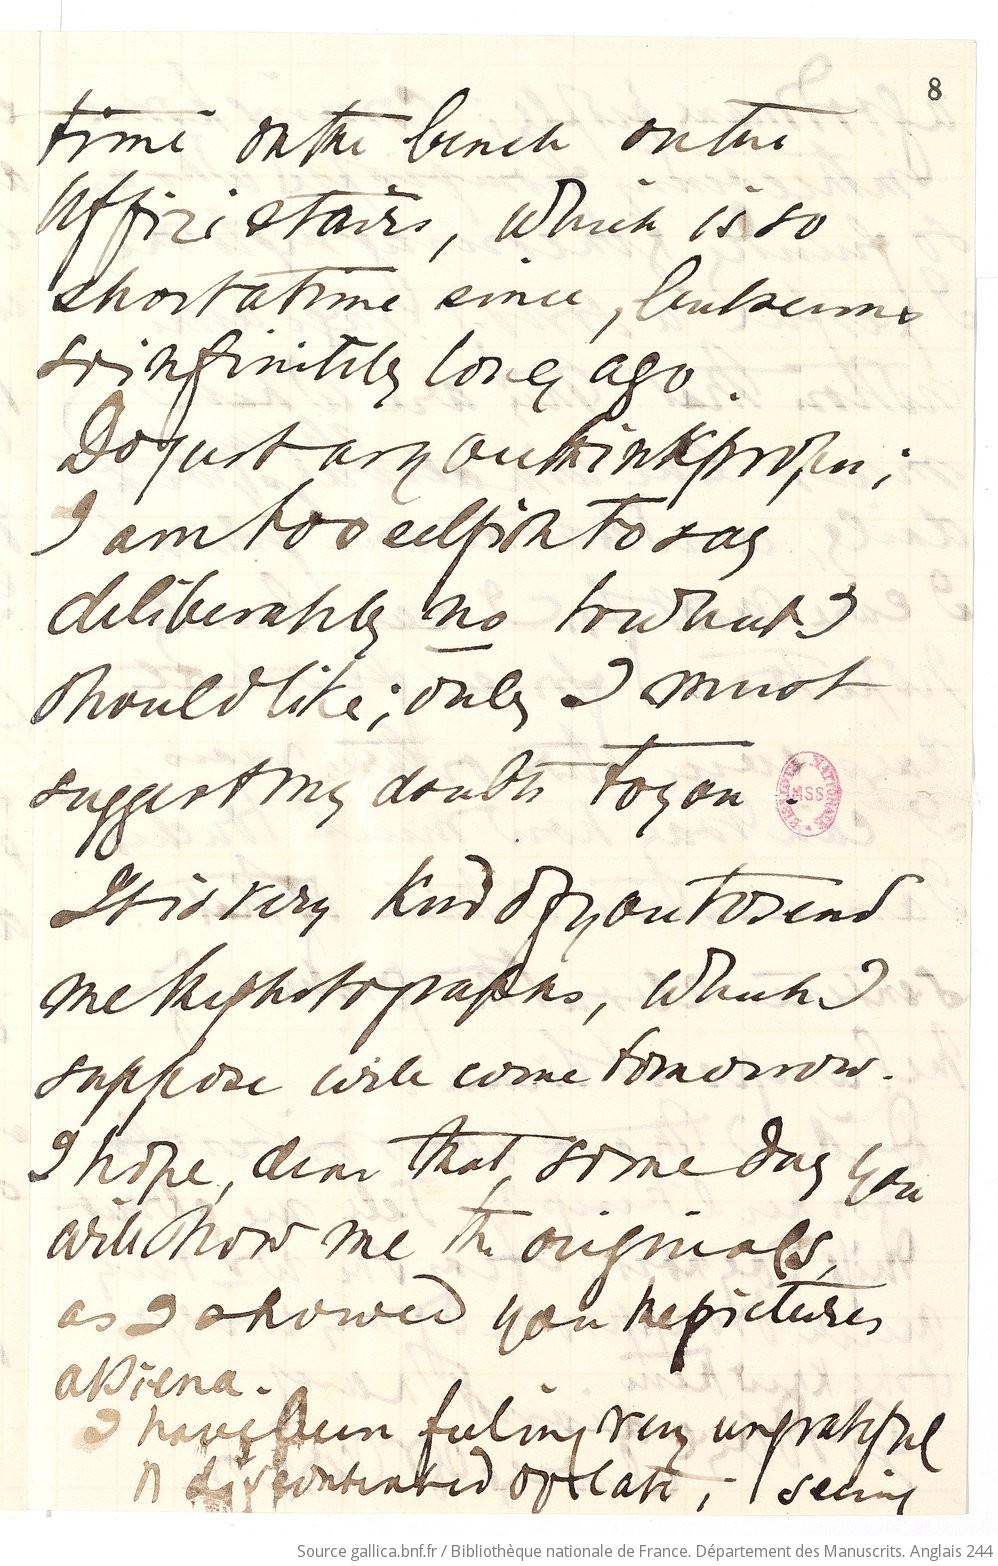 8
time on the bench on the
Uffizi stairs, which is so
short a time since, but seems
so infinitely long ago.
Do just as you think proper;
I am too selfish to say
deliberately no to what I
should like; only I must
suggest my doubts to you.
BIBLIOTHÈQUE NATIONALE MSS
It is very kind of you to send
me the photographs, which I
suppose will come tomorrow.
I hope, dear, that, some day you
will show me the originals,
as I showed you the pictures
at Siena.
I have been feeling very ungrateful
& discontented of late; seeing
Source gallica.bnf.fr / Bibliothèque nationale de France. Département des Manuscrits. Anglais 244